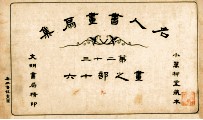 名人書畫扇集
第二十三
畫之部十六
小萬柳堂藏本
文明書局精印